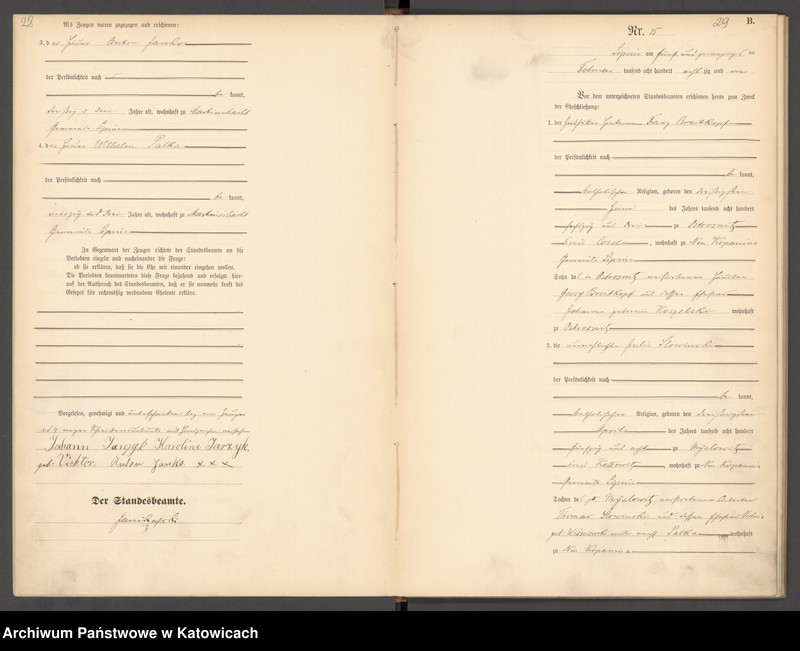 28
Als Zeugen waren zugezogen und erschienen:
3. der Häuer Anton Janko
der Persönlichkeit nach
be kannt,
dreißig u drei Jahre alt, wohnhaft zu Martinschacht
Gemeinde Lipine
4. der Häuer Wilhelm Palka
der Persönlichkeit nach
be kannt,
zwanzig und drei Jahre alt, wohnhaft zu Martinschacht
Gemeinde Lipine
In Gegenwart der Zeugen richtete der Standesbeamte an die
Verlobten einzeln und nacheinander die Frage:
ob sie erklären, daß sie die Ehe mit einander eingehen wollen.
Die Verlobten beantworteten diese Frage bejahend und erfolgte hier-
auf der Ausspruch des Standesbeamten, daß er sie nunmehr kraft des
Gesetzes für rechtmäßig verbundene Eheleute erkläre.
Vorgelesen, genehmigt und unterschrieben
wegen Schreibensunkunde mit Handzeichen versehen
Johann Karoline Jarzyk,
geb: Anton Janko x x x
Der Standesbeamte.
29
B.
Nr. 15
Lipine am fünf und zwanzigsten
Februar tausend acht hundert acht zig und
Vor dem unterzeichneten Standesbeamten erschienen heute zum Zweck
der Eheschließung:
1. der Franz Breitkopf
der Persönlichkeit nach
be kannt,
katholischer Religion, geboren den dreißigsten
des Jahres tausend acht hundert
sechszig und drei zu Ostrosnitz
Kreis Cosel, wohnhaft zu Neu Kopanina
Gemeinde Lipine
Sohn des in Ostrosnitz verstorbenen Häusler
Georg Breitkopf und dessen Ehefrau
Johanna geborene wohnhaft
zu Ostrosnitz
2. die unverehelichte Julie Slowinski
der Persönlichkeit nach
be kannt,
katholischer Religion, geboren den dreißigsten
April des Jahres tausend acht hundert
sechszig und acht zu Myslowitz
Kreis Kattowitz, wohnhaft zu Neu Kopanina
Gemeinde Lipine
Tochter des zu Myslowitz verstorbenen
Thomas Slowinski und dessen Ehefrau
geb. Wisniowski wieder verehel. Palka wohnhaft
zu Neu Kopanina
Archiwum Państwowe w Katowicach